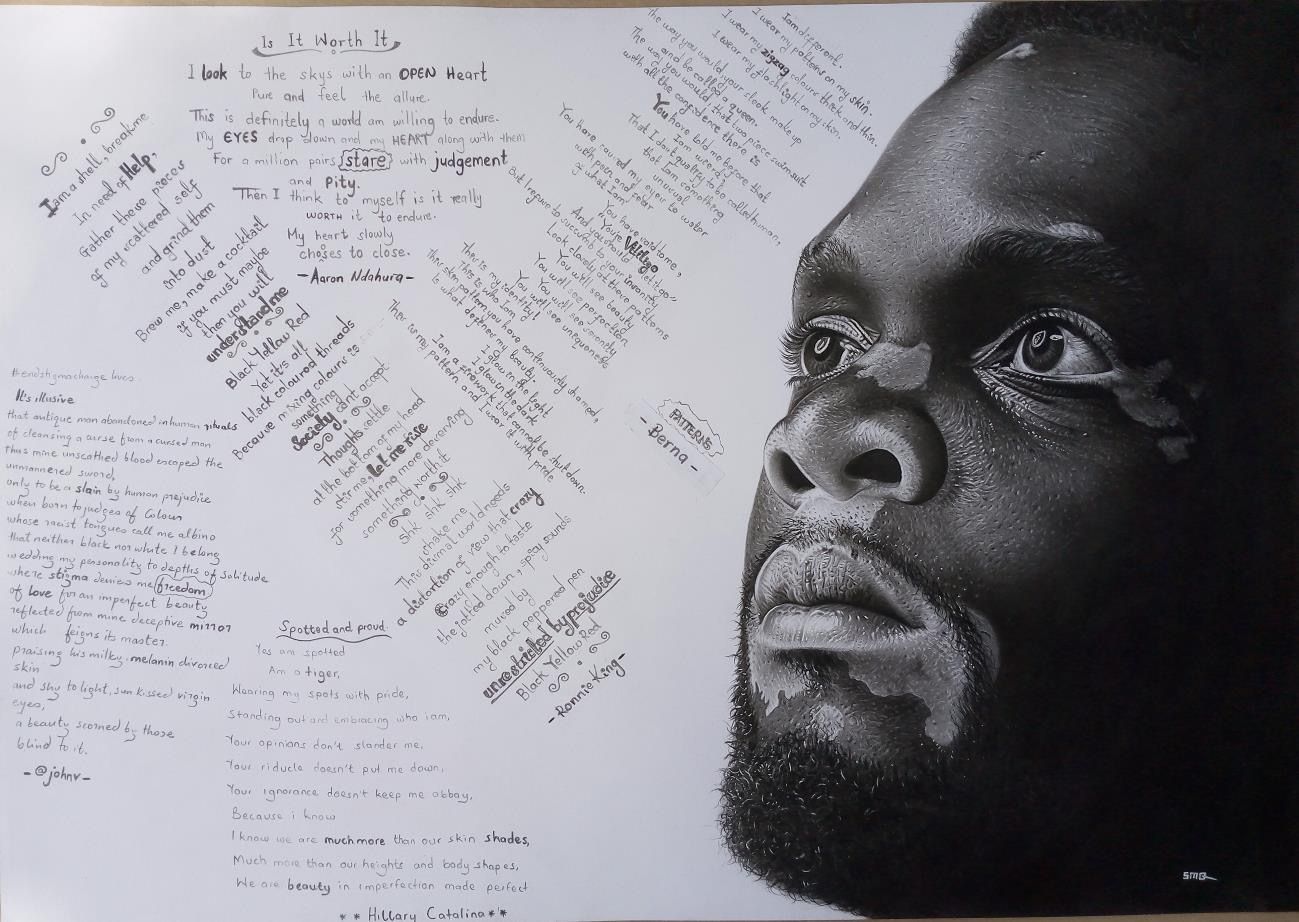 Is It Worth It
I look to the skys with an OPEN Heart
Pure and feel the allure.
This is definitely a world am willing to endure.
My EYES drop down and my HEART along with them
For a million pairs stare with judgement
and Pity.
Then I think to myself is it really
WORTH it to endure.
My heart slowly
choses to close.
-Aaron Ndahura-
I am a shell, break me
In need of Help.
Gather these pieces
of my scattered self
and grind them
into dust
Brew me, make a cocktail
if you must maybe
then you will
understand me
Black Yellow Red
Yet it's all
black coloured threads
Because mixing colours is
something
Society can't accept
Thoughts settle
at the bottom of my head
stir me, let me rise
for something more deserving
something worth it
Shk shk shk
shake me
This dismal world needs
a distortion of view that crazy
Crazy enough to taste
the jotted down, spicy sounds
mused by
my black peppered pen
unrestricted by prejudice
Black Yellow Red
-Ronnie King-
I am different.
I wear my patterns on my skin.
I wear my zigzag colours thick and thin.
I wear my flashlight on my skin,
The way you would your sleek make up
and be called a queen.
The way you would that two piece swimsuit
with all the confidence there is
You have told me before that
I am weird,
That I don't qualify to be called human,
that I am something
unusual
You have caused my eyes to water
with pain and fear
of what I am
But I refuse to succumb to your insanity
You have said to me,
"You're Vitiligo
And you should let it go"
Look closely at these patterns
You will see beauty
You will see perfection
You will see serenity
You will see uniqueness
This is my identity!
This is who I am
This skin pattern you have continuously shamed,
is what defines my beauty.
I glow in the light
I glow in the dark
I am a firework that cannot be shut down.
This is my pattern, and I wear it with pride
PATTERNS
- Berna -
#endstigmachange lives.
It's illusive
that antique man abandoned inhuman rituals
of cleansing a curse from a cursed man
thus mine unscathed blood escaped the
unmannered sword,
only to be a slain by human prejudice
when born to judges of Colour
whose racist tongues call me albino
that neither black nor white I belong
wedding my personality to depths of solitude
where stigma denies me freedom
of love for an imperfect beauty
reflected from mine deceptive mirror
which feigns its master.
praising his milky, melanin divorced
skin
and shy to light, sun kissed virgin
eyes,
a beauty scorned by those
blind to it.
-@johnv-
Spotted and proud.
Yes am spotted
Am a tiger,
Wearing my spots with pride,
Standing out and embracing who iam,
Your opinions don't slander me,
Your riducle doesn't put me down,
Your ignorance doesn't keep me abbay,
Because i know
I know we are much more than our skin shades,
Much more than our heights and body shapes,
We are beauty in imperfection made perfect
** Hillary Catalina **
SMB